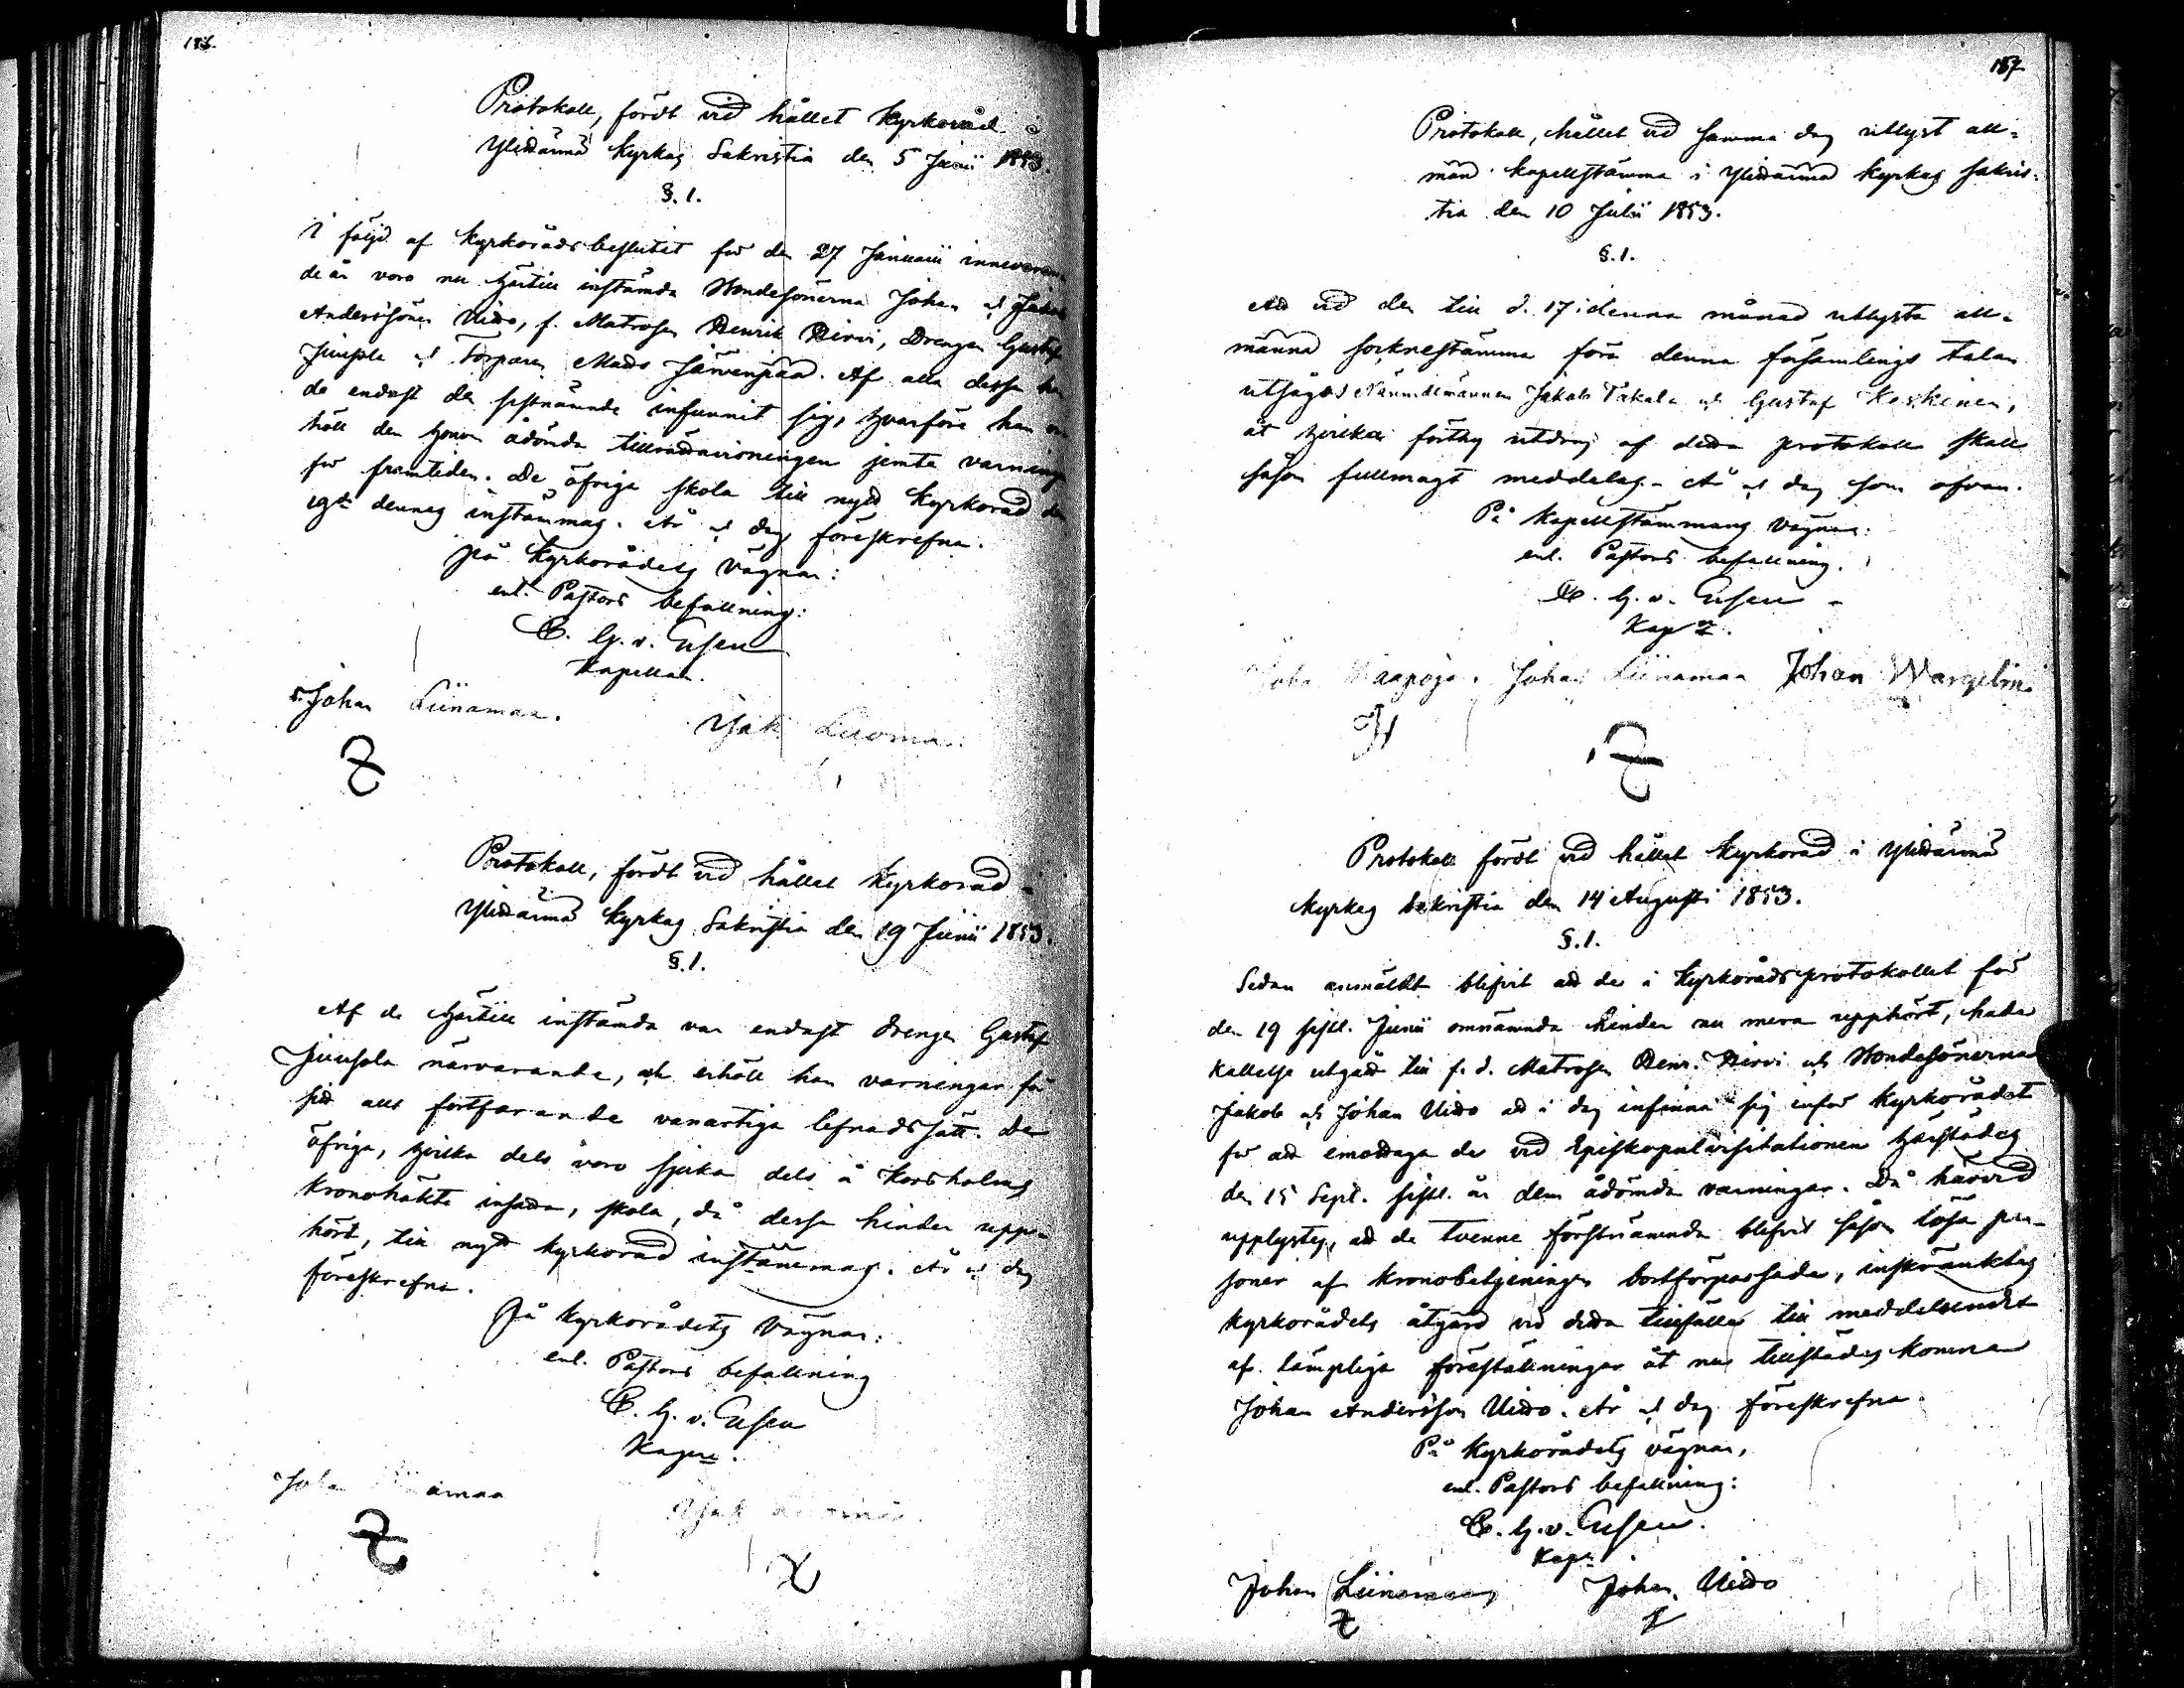 186.
Protokoll, fördt vid hållet kyrkoråd i
Ylihärmä kyrkas Sakristia den 5 Junii 1853.
§. 1.
I följd af kyrkorådsbeslutet för den 27 Januarii innevaran
de år voro nu härtill instämda Bondesönerna Johan och Jakob
Anderssöner Uitto, f. Matrosen Henrik Hirvi, Drengen Gustaf
Juusola och Torparen Matts Järvenpää. Af alla dessa ha
de endast den sistnämnde infunnit sig, hvarföre han er
höll den honom ådömda tillrättavisningen jemte varning
för framtiden. De öfriga skola till nytt kyrkoråd den
19de dennes instämmas. År och dag föreskrefna.
På kyrkorådets vägnar:
enl. Pastors befallning:
C. G. v. Essen
Kapellan.
Johan Liinamaa.
Jak Luoma
Protokoll, fördt vid hållet kyrkoråd i
Ylihärmä kyrkas Sakristia den 19 Junii 1853.
§. 1.
Af de härtill instämda var endast drengen Gustaf
Juusola närvarande, och erhöll han varningar för
sitt allt fortfarande vanartiga lefnadssätt. De
öfriga, hvilka dels voro sjuka dels å Korsholms
kronohäkte insatta, skola, då dessa hinder upp-
hört, till nytt kyrkoråd instämmas. År och dag
föreskrefna.
På kyrkorådets vägnar:
enl. Pastors befallning
C. G. v. Essen
Kapn.
Johan Liinamaa
Jak Luoma
187
Protokoll, hållet vid samma dag utlyst all-
män kapellstämma i Ylihärmä kyrkas sakris-
tia den 10 Julii 1853.
§. 1.
Att vid den till d. 17 i denna månad utlysta all-
männa socknestämma föra denna församlings talan
utsågos Nämndemännen Jakob Takala och Gustaf Keskinen,
åt hvilka förthy utdrag af detta protokoll skall
såsom fullmagt meddelas. År och dag som ofvan.
På kapellstämmans vägnar:
enl. Pastors befallning.
C. G. v. Essen
Kapn.
Johan Haapoja. Johan Liinamaa Johan Wargelin.
Protokoll fördt vid hållet kyrkoråd i Ylihärmä
kyrkas sakristia den 14 Augusti 1853.
§. 1.
Sedan anmäldt blifvit att de i kyrkorådsprotokollet för
den 19 sistl. Junii omnämnda hinder nu mera upphört, hade
kallelse utgått till f. d. Matrosen Henr. Hirvi och Bondesönerna
Jakob och Johan Uitto att i dag infinna sig inför kyrkorådet
för att emottaga de vid Episkopalvisitationen härstädes
den 15 Sept. sistl. år dem ådömda varningar. Då härvid
upplystes, att de tvenne förstnämnda blifvit såsom lösa per-
soner af kronobetjeningen bortförpassade, inskränktes
kyrkorådets åtgärd vid detta tillfälle till meddelandet
af lämpliga föreställningar åt nu tillstädes komna
Johan Andersson Uitto. År och dag föreskrefna.
På kyrkorådets vägnar,
enl. Pastors befallning:
C. G. v. Essen.
Kapn
Johan Liinamaa Johan Uitto